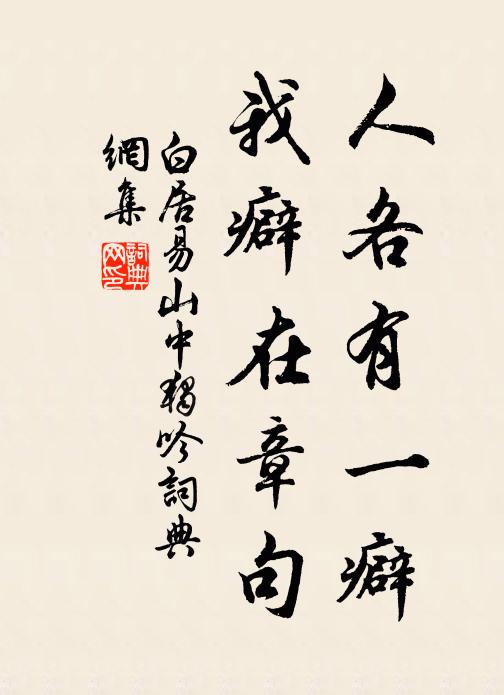 人各有一癖
我癖在章句
白居易山中独吟詞典
網集
詞典
网印